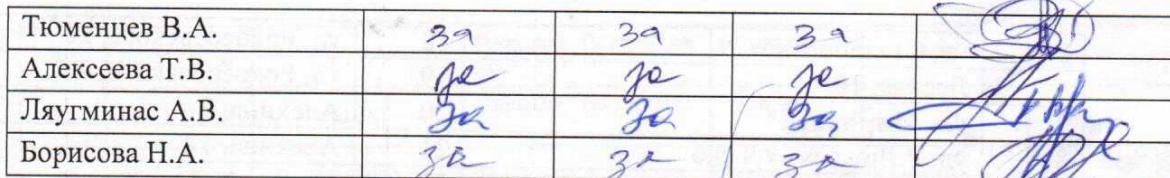 Тюменцев В.А. за за за
Алексеева Т.В. за за за
Ляугминас А.В. за за за
Борисова Н.А. за за за